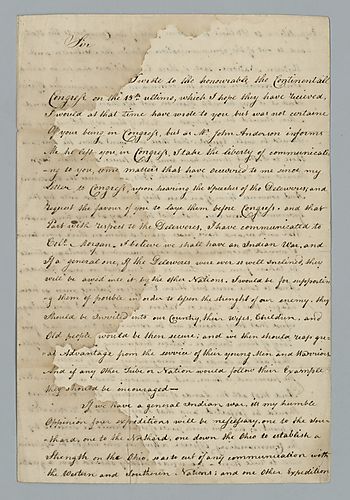 Sir
I wrote to the honourable the Continentall
Congress on the 13th ultimo, which I hope they have recieved,
I would at that time have wrote to you but was not certaine
Of your being in Congress, but as Mr. John Anderson informs
Me he left you in Congress, I take the liberty of communicati
ng to you, some matters that have occurred to me since my
letter to Congress, upon hearing the Speaches of the Delewares, and
request the favour of you to laye them before Congress. and that
Part with respect to the Delewares, I have communicated to
Coll. Morgan, I believe we shall have an Indian War, and
If a general one, If the Delewares was ever so well Inclined, they
will be awed into it by the other Nations, I would be for supporting
ng them if possible in order to lessen the strenght of our enemy. they
Should be Invited into our Country, their Wifes, Children, and
Old people would be then secure; and we then should reap gre
at Advantage from the service of their young Men and Warriors
And if any other Tribe or Nation would follow their Example
they should be incouraged—
If we have a general Indian war, its my humble
Oppinion four expeditions will be nessessary, one to the Sou
thard, one to the Nothard, one down the Ohio to establish a
Strength on the Ohio, so as to cut of any communication with
the Western and Southeren Nations; and one other Expedition